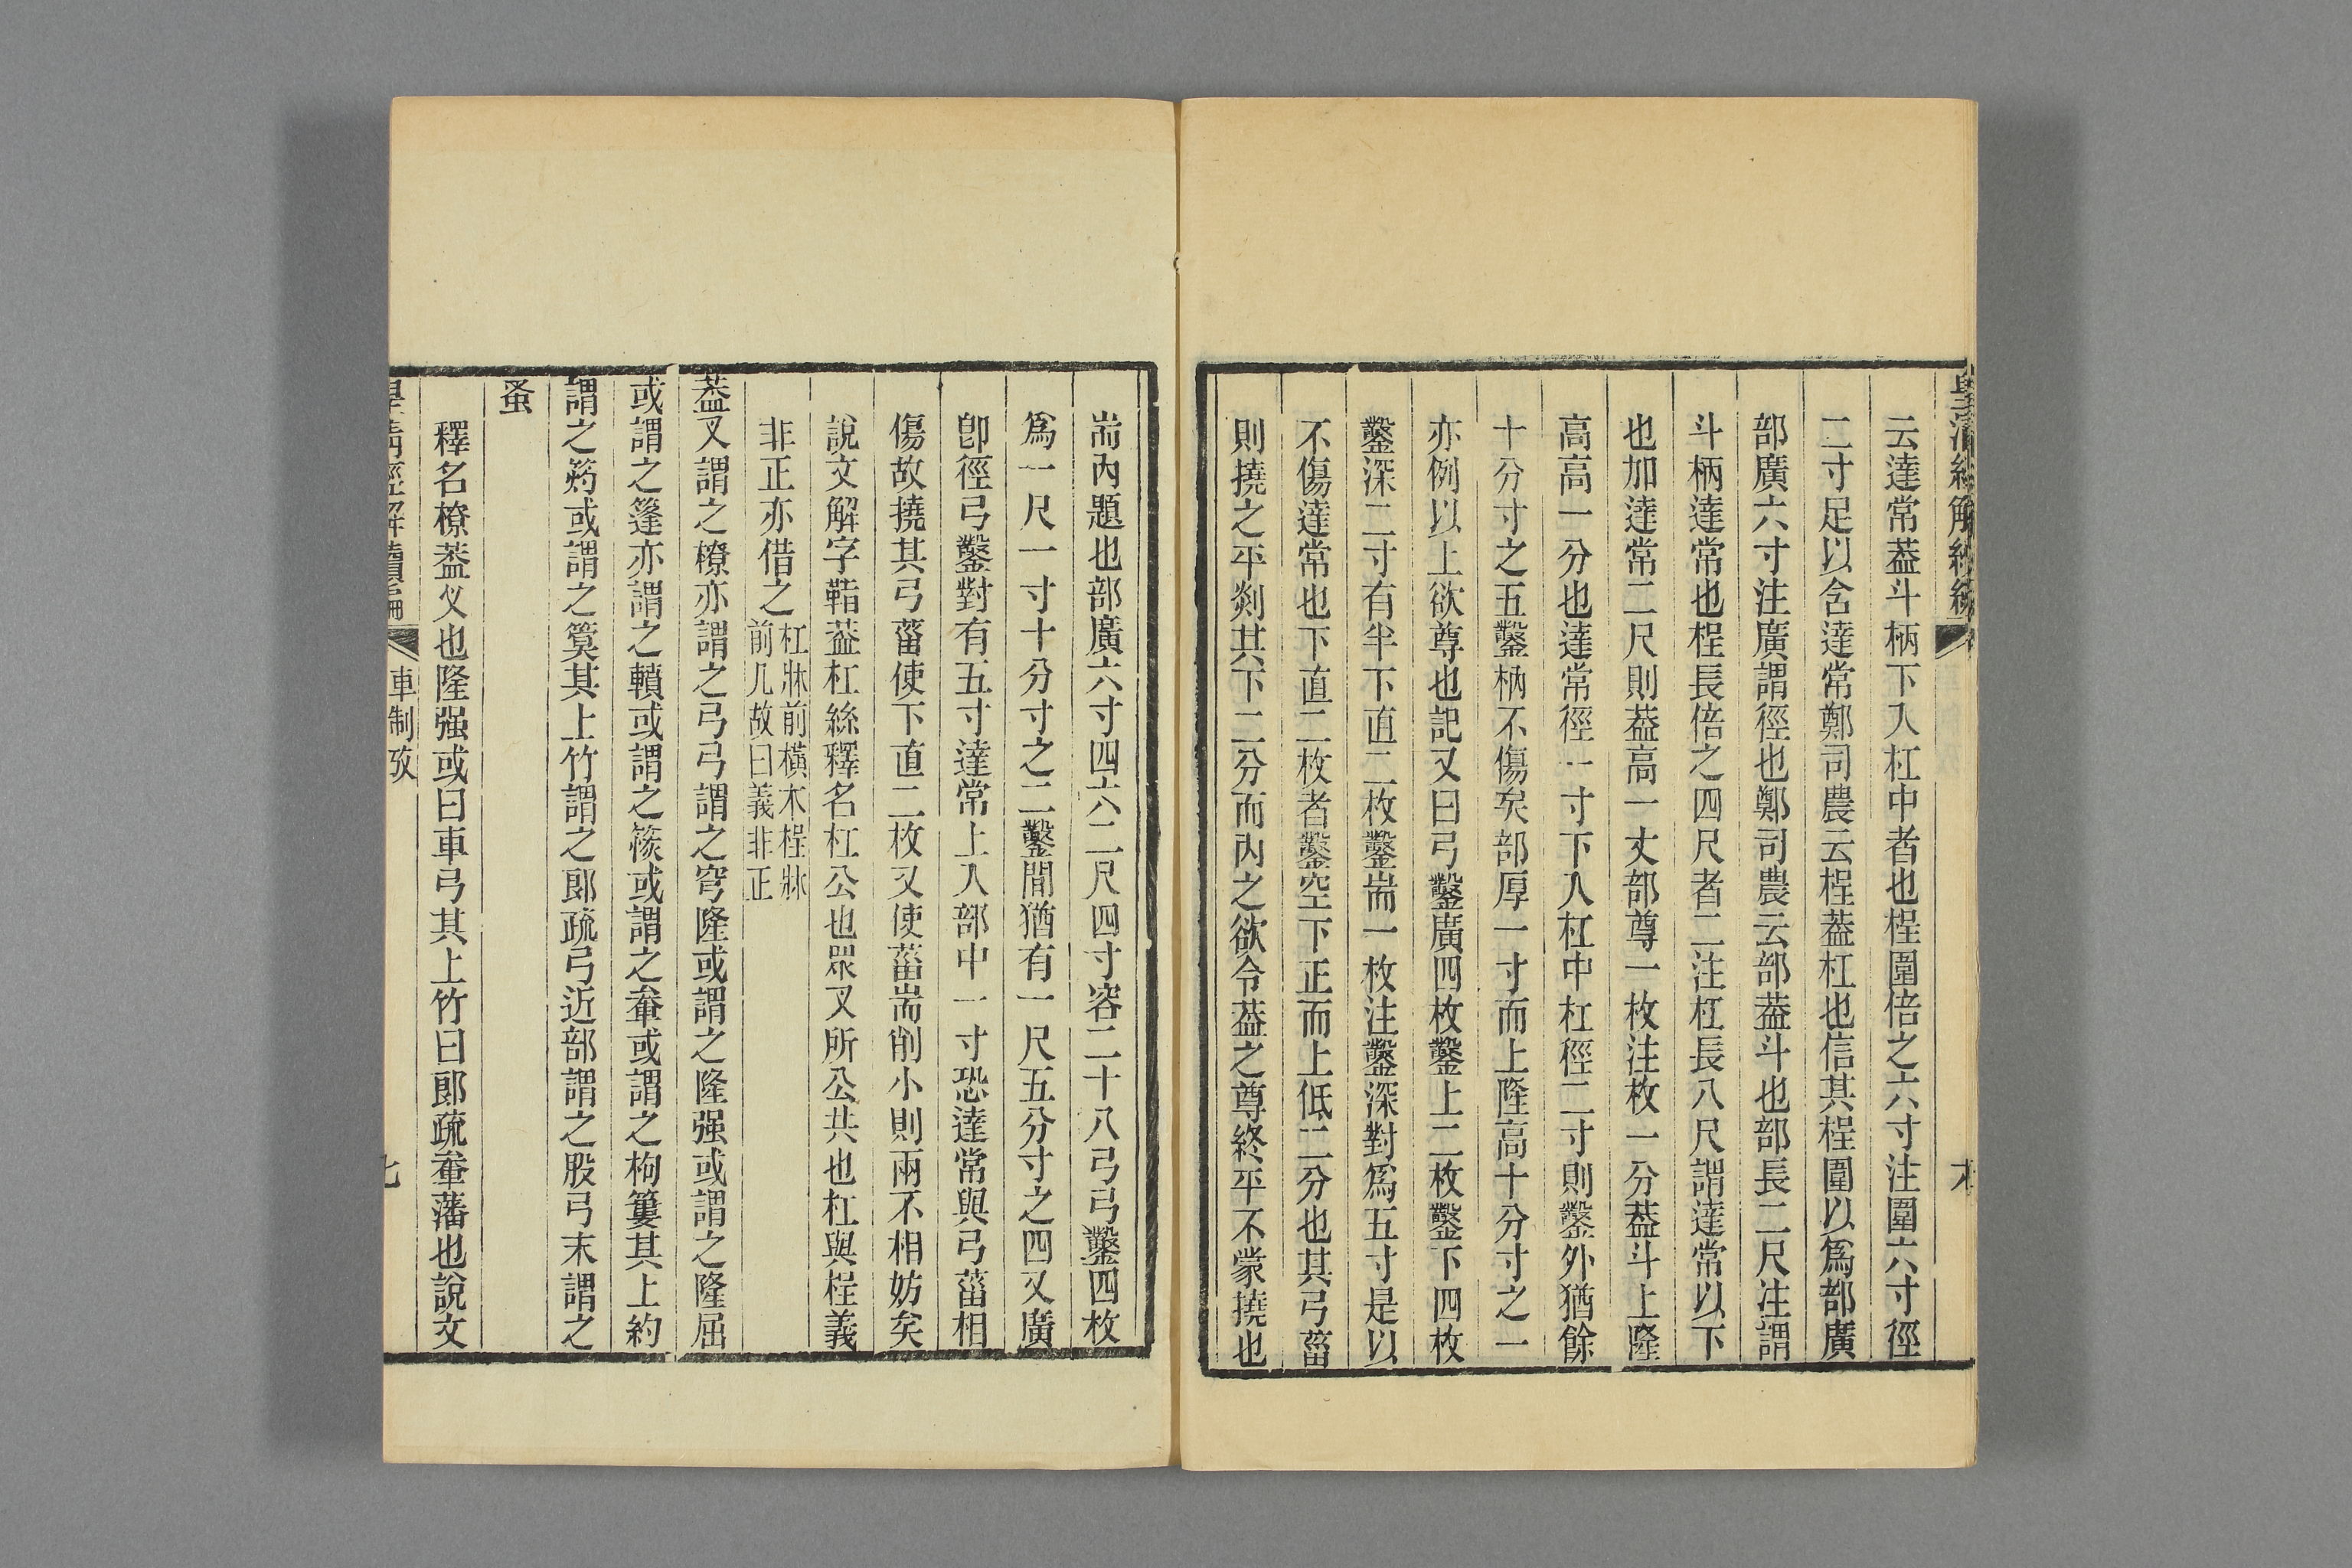 云達常葢斗柄下入杠中者也桯圍倍之六寸注圍六寸徑
二寸足以含達常鄭司農云桯葢杠也信其桯圍以爲部廣
部廣六寸注廣謂徑也鄭司農云部葢斗也部長二尺注謂
斗柄達常也桯長倍之四尺者二注杠長八尺謂達常以下
也加達常二尺則葢高一丈部尊一枚注枚一分葢斗上隆
高高一分也達常徑一寸下入杠中杠徑二寸則鑿外猶餘
十分寸之五鑿柄不傷矣部厚一寸而上隆高十分寸之一
亦例以上欲尊也記又曰弓鑿廣四枚鑿上二枚鑿下四枚
鑿深二寸有半下直二枚鑿耑一枚注鑿深對爲五寸是以
不傷達常也下直二枚者鑿空下正而上低二分也其弓菑
則撓之平剡其下二分而內之欲令葢之尊終平不蒙撓也
耑內題也部廣六寸四六二尺四寸容二十八弓弓鑿四枚
爲一尺一寸十分寸之二鑿閒猶有一尺五分寸之四又廣
卽徑弓鑿對有五寸達常上入部中一寸恐達常與弓菑相
傷故撓其弓菑使下直二枚又使菑耑削小則兩不相妨矣
說文解字鞊葢杠絲釋名杠公也眾叉所公共也杠與桯義
非正亦借之杠牀前橫木桯牀
前几故曰義非正
葢叉謂之橑亦謂之弓弓謂之穹隆或謂之隆强或謂之隆屈
或謂之篷亦謂之䡺或謂之篨或謂之軬或謂之枸簍其上約
謂之箹或謂之䈿其上竹謂之郞疏弓近部謂之股弓末謂之
蚤
釋名橑葢叉也隆强或曰車弓其上竹曰郞疏軬藩也說文
皇淸經解續編
車制攷
七